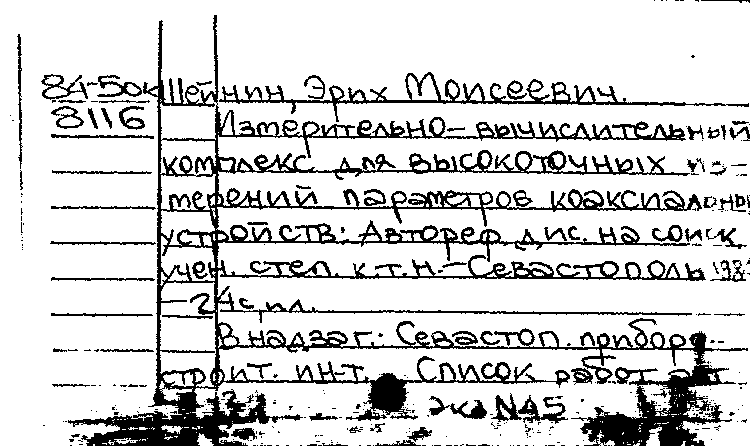 84-50к Шейнин, Эрих Моисеевич.
8116 Измерительно-вычислительный
комплекс для высокоточных из-
мерений параметров коаксиальны
устройств: Автореф. дис. на соиск.
учен. степ. к.т.н.-Севастополь
-24с, ил.
В надзаг.: Севастоп. приборо-
строит. ин-т. Список работ авт
экз N45